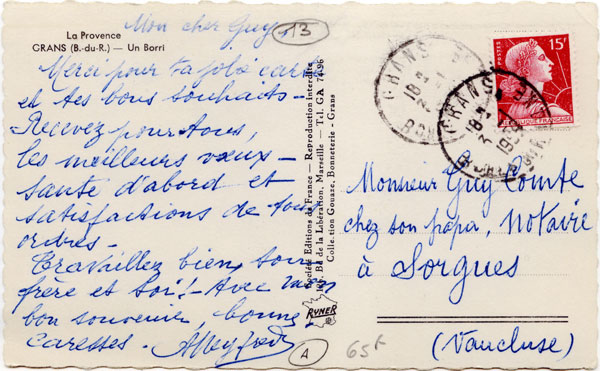 La Provence
GRANS (B.-du-R.) — Un Borri
Mon cher Guy,
Merci pour ta jolie carte
et tes bons souhaits -
Recevez pour tous,
les meilleurs vœux -
santé d'abord et
satisfactions de tous
ordres -
Travaillez bien, ton
frère et toi ! - Avec mon
bon souvenir, bonnes
caresses.
13
A
65F
Société Editions de France — Reproduction interdite
Bd de la Libération, Marseille — Tél. GA. 74-96
Collection Gouaze, Bonneterie - Grans
RYNER
GRANS
18
GRANS
18
1959
POSTES
15F
REPUBLIQUE FRANÇAISE
Monsieur Guy Comte
chez son papa, Notaire
à Sorgues
(Vaucluse)